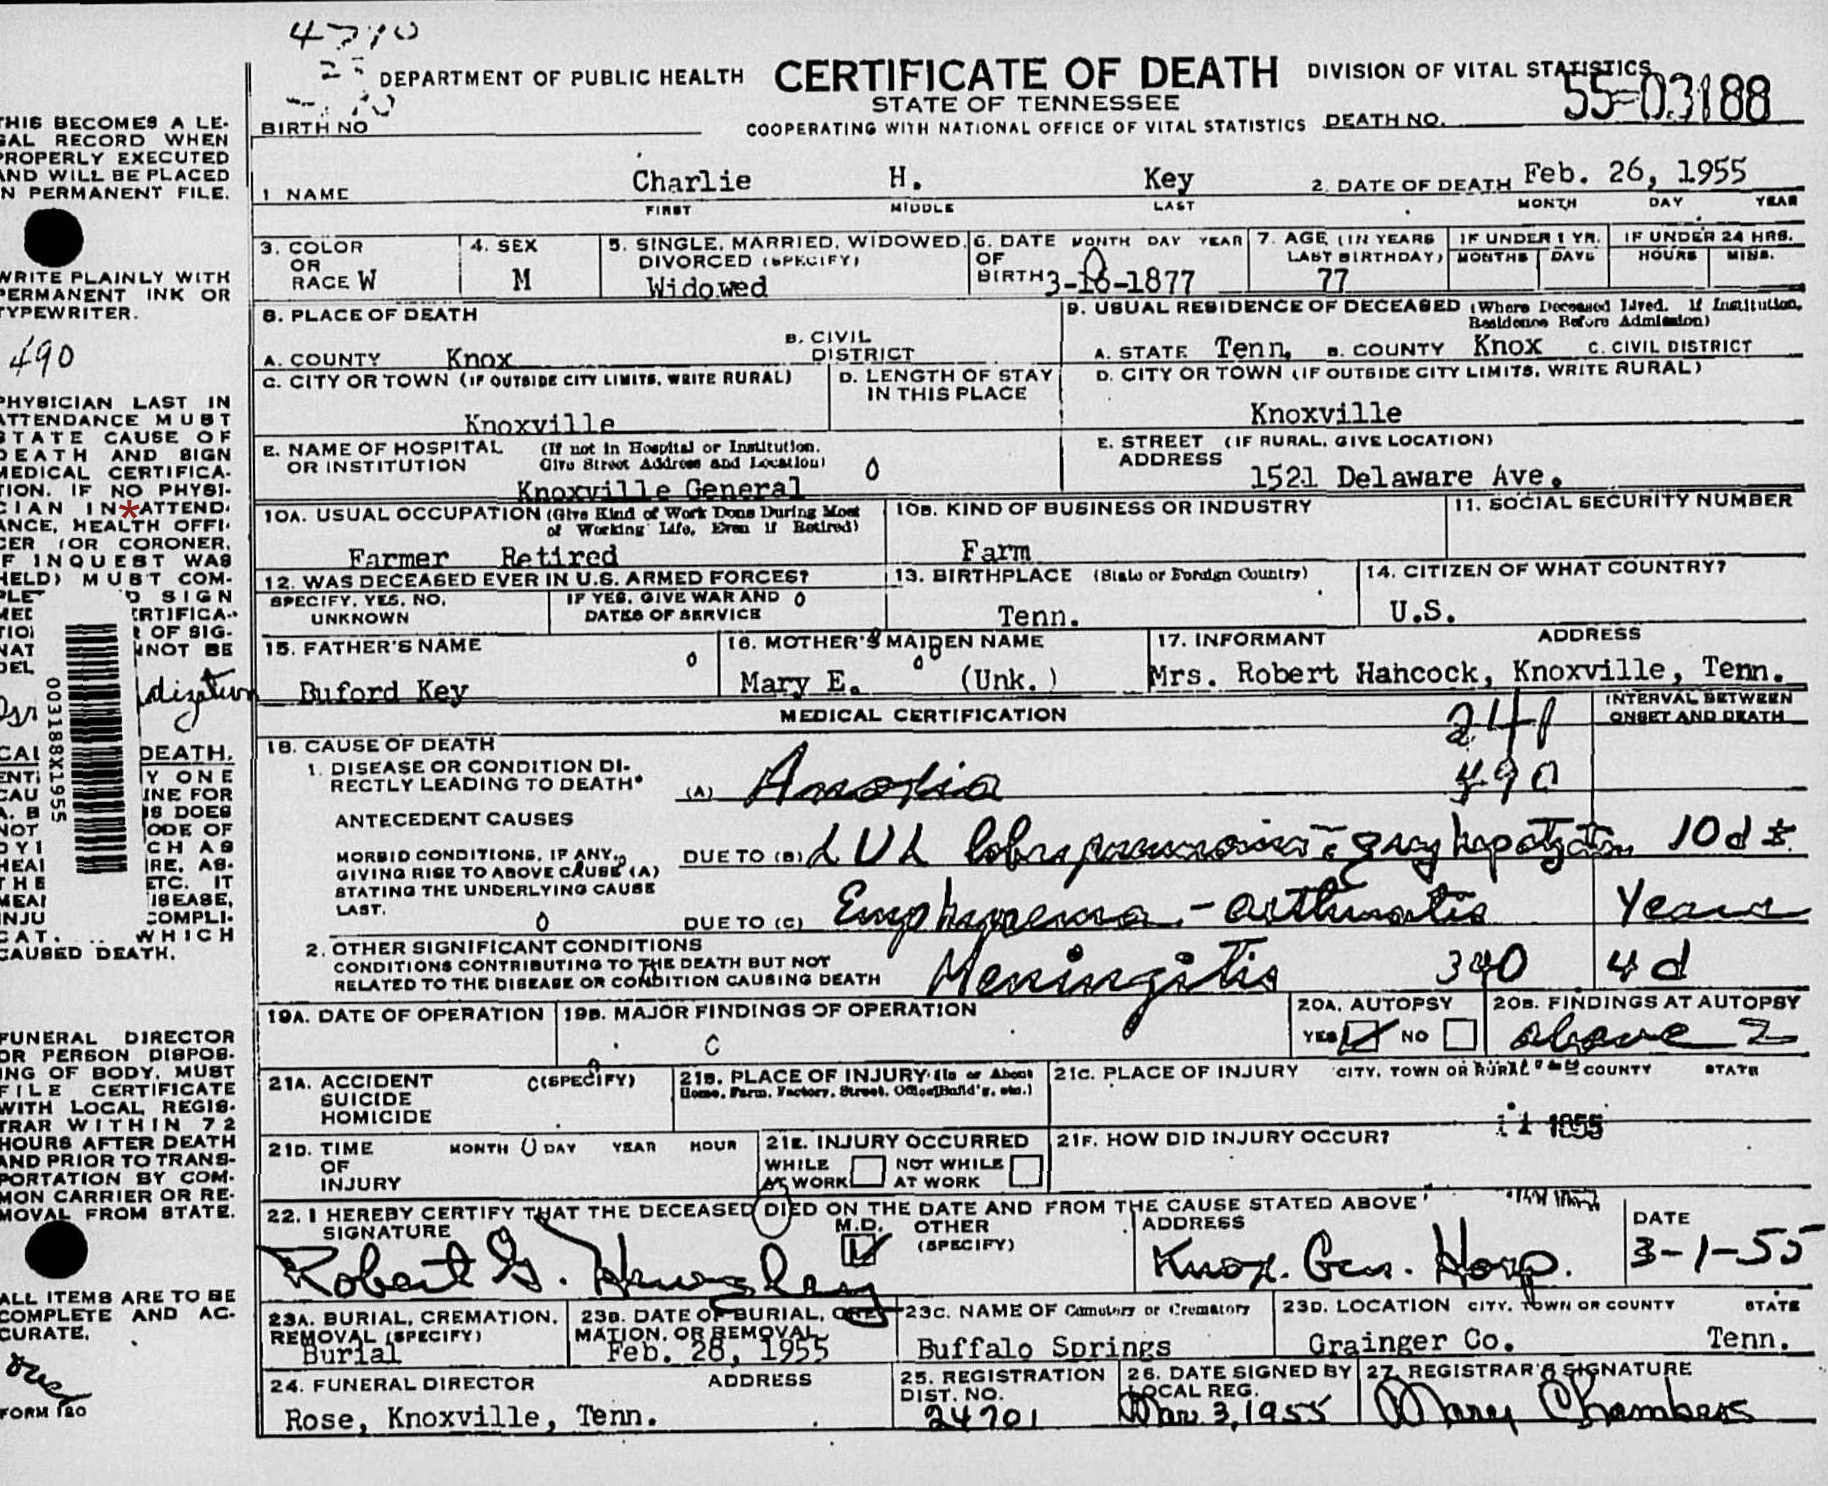 4770
DEPARTMENT OF PUBLIC HEALTH CERTIFICATE OF DEATH DIVISION OF VITAL STATISTICS
STATE OF TENNESSEE
BIRTH NO COOPERATING WITH NATIONAL OFFICE OF VITAL STATISTICS DEATH NO. 55-03188
1 NAME Charlie H. Key 2. DATE OF DEATH Feb. 26, 1955
FIRST MIDDLE LAST MONTH DAY YEAR
3. COLOR OR RACE W
4. SEX M
5. SINGLE, MARRIED, WIDOWED, DIVORCED (SPECIFY) Widowed
6. DATE OF BIRTH MONTH DAY YEAR 3-16-1877
7. AGE (IN YEARS LAST BIRTHDAY) 77
IF UNDER 1 YR. MONTHS DAYS
IF UNDER 24 HRS. HOURS MINS.
8. PLACE OF DEATH
A. COUNTY Knox
B. CIVIL DISTRICT
C. CITY OR TOWN (IF OUTSIDE CITY LIMITS, WRITE RURAL) Knoxville
D. LENGTH OF STAY IN THIS PLACE
E. NAME OF HOSPITAL OR INSTITUTION (If not in Hospital or Institution, Give Street Address and Location) 0
Knoxville General
9. USUAL RESIDENCE OF DECEASED (Where Deceased Lived. If Institution, Residence Before Admission)
A. STATE Tenn. B. COUNTY Knox C. CIVIL DISTRICT
D. CITY OR TOWN (IF OUTSIDE CITY LIMITS, WRITE RURAL)
Knoxville
E. STREET ADDRESS (IF RURAL, GIVE LOCATION)
1521 Delaware Ave.
10A. USUAL OCCUPATION (Give Kind of Work Done During Most of Working Life, Even if Retired)
Farmer Retired
10B. KIND OF BUSINESS OR INDUSTRY
Farm
11. SOCIAL SECURITY NUMBER
12. WAS DECEASED EVER IN U.S. ARMED FORCES?
SPECIFY, YES, NO, UNKNOWN
IF YES, GIVE WAR AND DATES OF SERVICE 0
13. BIRTHPLACE (State or Foreign Country)
Tenn.
14. CITIZEN OF WHAT COUNTRY?
U.S.
15. FATHER'S NAME 0
Buford Key
16. MOTHER'S MAIDEN NAME 0
Mary E. (Unk.)
17. INFORMANT ADDRESS
Mrs. Robert Hancock, Knoxville, Tenn.
MEDICAL CERTIFICATION
241
INTERVAL BETWEEN ONSET AND DEATH
18. CAUSE OF DEATH
1. DISEASE OR CONDITION DIRECTLY LEADING TO DEATH* (A) Anoxia 490
ANTECEDENT CAUSES
MORBID CONDITIONS, IF ANY, GIVING RISE TO ABOVE CAUSE (A) STATING THE UNDERLYING CAUSE LAST. 0
DUE TO (B) LUL lobar pneumonia gray hepatization 10d ±
DUE TO (C) Emphysema - asthmatic Years
2. OTHER SIGNIFICANT CONDITIONS
CONDITIONS CONTRIBUTING TO THE DEATH BUT NOT
RELATED TO THE DISEASE OR CONDITION CAUSING DEATH
Meningitis 340 4 d
19A. DATE OF OPERATION
19B. MAJOR FINDINGS OF OPERATION
20A. AUTOPSY YES NO
20B. FINDINGS AT AUTOPSY
above 2
21A. ACCIDENT SUICIDE HOMICIDE (SPECIFY)
21B. PLACE OF INJURY (In or About Home, Farm, Factory, Street, Office Build'g, etc.)
21C. PLACE OF INJURY CITY, TOWN OR RURAL COUNTY STATE
1955
21D. TIME OF INJURY MONTH DAY YEAR HOUR
21E. INJURY OCCURRED
WHILE AT WORK NOT WHILE AT WORK
21F. HOW DID INJURY OCCUR?
22. I HEREBY CERTIFY THAT THE DECEASED DIED ON THE DATE AND FROM THE CAUSE STATED ABOVE
SIGNATURE M.D. OTHER (SPECIFY) ADDRESS DATE
Robert G. Knox. Gen. Hosp. 3-1-55
23A. BURIAL, CREMATION, REMOVAL (SPECIFY)
Burial
23B. DATE OF BURIAL, CREMATION, OR REMOVAL
Feb. 28, 1955
23C. NAME OF Cemetery or Crematory
Buffalo Springs
23D. LOCATION CITY, TOWN OR COUNTY STATE
Grainger Co. Tenn.
24. FUNERAL DIRECTOR ADDRESS
Rose, Knoxville, Tenn.
25. REGISTRATION DIST. NO.
24701
26. DATE SIGNED BY LOCAL REG.
Mar 3, 1955
27. REGISTRAR'S SIGNATURE
Mary Chambers
THIS BECOMES A LE-
GAL RECORD WHEN
PROPERLY EXECUTED
AND WILL BE PLACED
IN PERMANENT FILE.
WRITE PLAINLY WITH
PERMANENT INK OR
TYPEWRITER.
490
PHYSICIAN LAST IN
ATTENDANCE MUST
STATE CAUSE OF
DEATH AND SIGN
MEDICAL CERTIFICA-
TION. IF NO PHYSI-
CIAN IN*ATTEND-
ANCE, HEALTH OFFI-
CER (OR CORONER,
IF INQUEST WAS
HELD) MUST COM-
D SIGN
RTIFICA-
OF SIG-
NNOT BE
003188X1955
DEATH.
Y ONE
INE FOR
IS DOES
ODE OF
CH AS
RE, AS-
THE ETC. IT
ISEASE,
COMPLI-
WHICH
CAUSED DEATH.
FUNERAL DIRECTOR
OR PERSON DISPOS-
ING OF BODY, MUST
FILE CERTIFICATE
WITH LOCAL REGIS-
TRAR WITHIN 72
HOURS AFTER DEATH
AND PRIOR TO TRANS-
PORTATION BY COM-
MON CARRIER OR RE-
MOVAL FROM STATE.
ALL ITEMS ARE TO BE
COMPLETE AND AC-
CURATE.
FORM 120